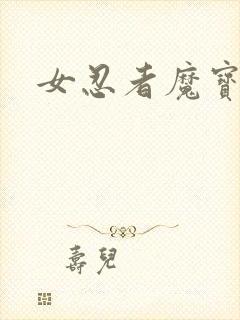 女忍者魔寶
壽兒